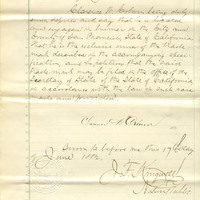 being duly
sworn deposes and say that he is a
and engaged in business in the City and
County of San Francisco, State of California
that he is the exclusive owner of the Trade
mark described in the accompanying speci-
fication, and he petitions that the said
Trade mark may be filed in the office of the
Secretary of State of the State of California
in accordance with the law in such case
made and provided
Sworn to before me this 17th day
of June
J. F. Kingwell
Notary Public